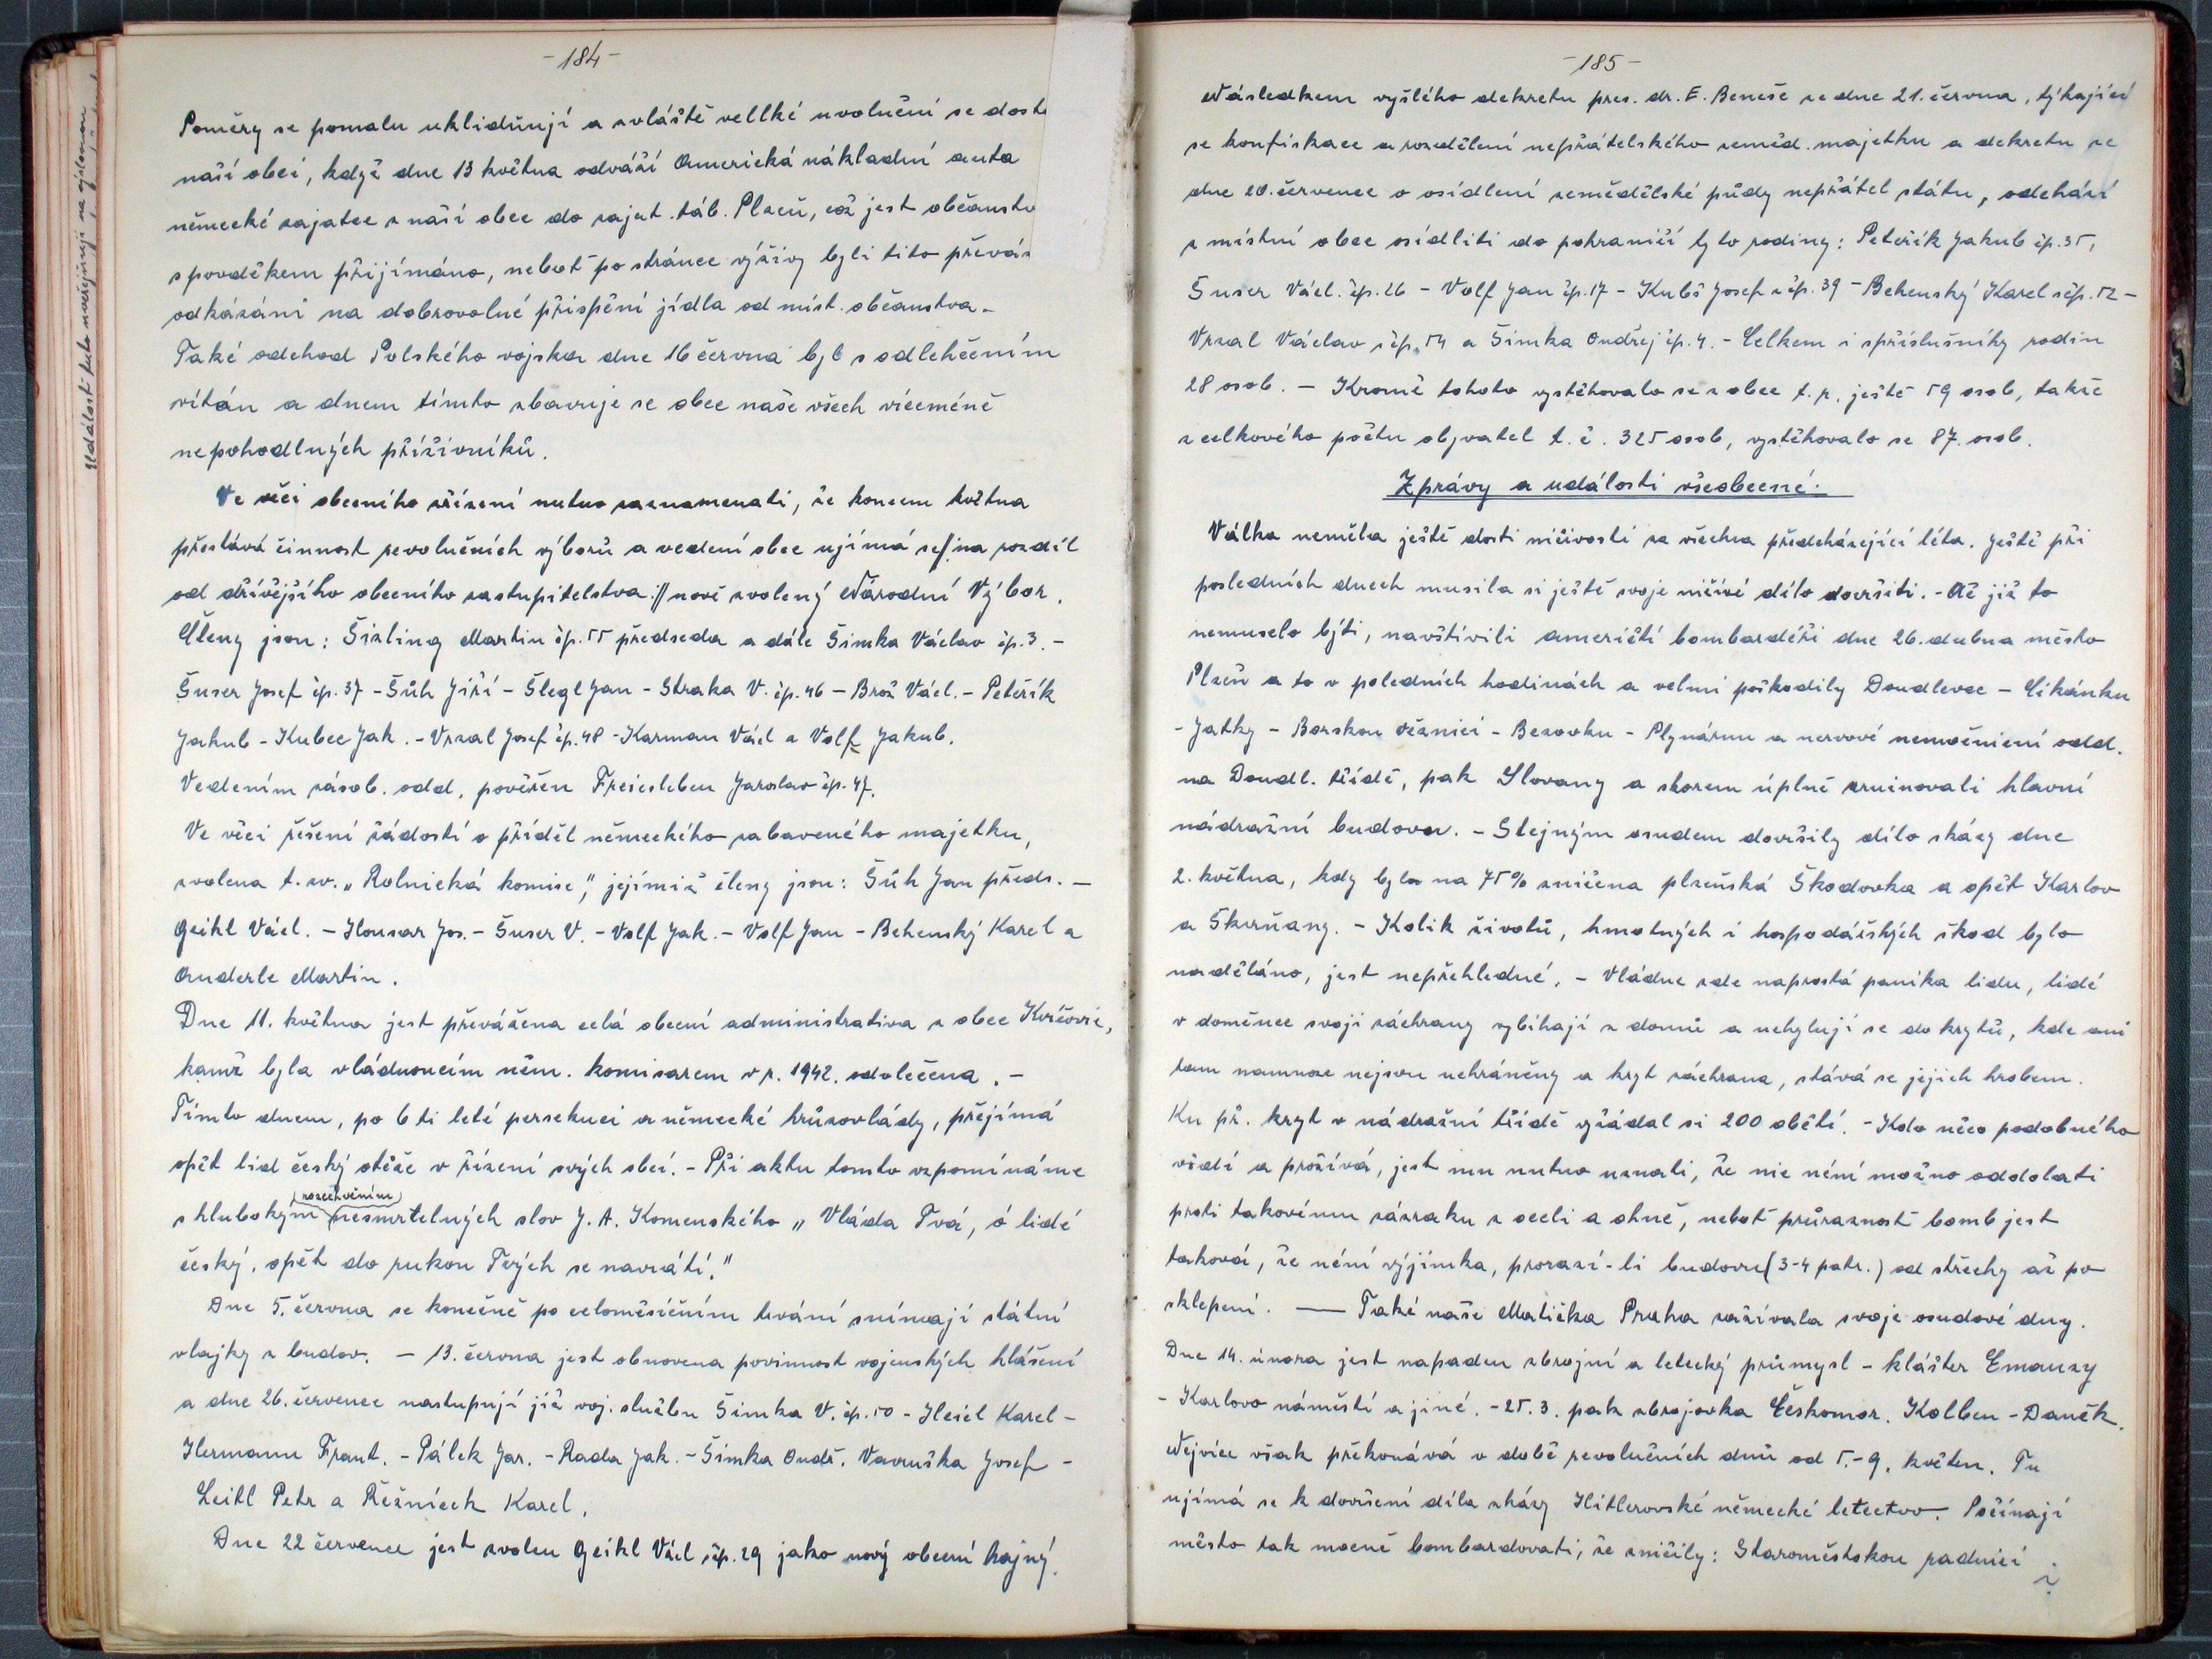 -184-
Poměry se pomalu uklidňují a zvláště vellké uvolnění se dost
naší obci, když dne 13 května odváží Americká nákladní auta
německé zajatce z naší obce do zajat. táb. Plzeň, což jest občanstv
s povděkem přijímáno, neboť po stránce výživy byli tito převáž
odkázáni na dobrovolné přispění jídla od míst. občanstva.
Také odchod Polského vojska dne 16 června byl s odlehčením
vítán a dnem tímto zbavuje se obec naše všech víceméně
nepohodlných příživníků.
Ve věci obecního zřízení nutno zaznamenati, že koncem května
přestává činnost revolučních výborů a vedení obce ujímá se /:na rozdíl
od dřívějšího obecního zastupitelstva:// nově zvolený Národní Výbor.
Členy jsou: Šizling Martin čp. 55 předseda a dále Šimka Václav čp. 3. -
Šuser Josef čp. 37 - Šůh Jiří - Šlegl Jan - Straka V. čp. 46 - Brož Václ. - Peteřík
Jakub - Kubec Jak. - Vrzal Josef čp. 48 - Karman Václ a Volf Jakub.
Vedením zásob. odd. pověřen Freiesleben Jaroslav čp. 47.
Ve věci řešení žádostí o příděl německého zabaveného majetku,
zvolena t. zv. „Rolnická komise", jejímiž členy jsou: Šůh Jan předs. -
Geikl Václ. - Housar Jos. - Šuser V. - Volf Jak. - Volf Jan - Behenský Karel a
Anderle Martin.
Dne 11. května jest převážena celá obecní administrativa z obce Kvíčovic,
kamž byla vládnoucím něm. komisarem v r. 1942. odvlečena. -
Tímto dnem, po 6 ti leté persekuci a německé hrůzovlády, přejímá
opět lid český otěže v řízení svých obcí. - Při aktu tomto vzpomínáme
rozechvěním
s hlubokým nesmrtelných slov J. A. Komenského „Vláda Tvá, ó lidé
český, opět do rukou Tvých se navrátí."
Dne 5. června se konečně po celoměsíčním trvání snímají státní
vlajky z budov. - 13. června jest obnovena povinnost vojenských hlášení
a dne 26. července nastupují již voj. službu Šimka V. čp. 50 - Heicl Karel -
Hermann Frant. - Pálek Jar. - Rada Jak. - Šimka Ondř. Vavruška Josef -
Leitl Petr a Řežníček Karel.
Dne 22 července jest zvolen Geikl Václ čp. 29 jako nový obecní hajný.
-185-
Následkem vyšlého dekretu pres. dr. E. Beneše ze dne 21. června, týkající
se konfiskace a rozdělení nepřátelského zeměd. majetku a dekretu ze
dne 20. července o osídlení zemědělské půdy nepřátel státu, odchází
z místní obce osídliti do pohraničí tyto rodiny: Peteřík Jakub čp. 35,
Šuser Václ. čp. 26 - Volf Jan čp. 17 - Kubš Josef z čp. 39 - Behenský Karel z čp. 52 -
Vrzal Václav z čp. 54 a Šimka Ondřej čp. 4. - Celkem i s příslušníky rodin
28 osob. - Kromě tohoto vystěhovalo se z obce t. r. ještě 59 osob, takže
z celkového počtu obyvatel t. č. 325 osob, vystěhovalo se 87 osob.
Zprávy a události všeobecné.
Válka neměla ještě dosti ničivosti za všechna předcházející léta. Ještě při
posledních dnech musila si ještě svoje ničivé dílo dovršiti. - Ač již to
nemuselo býti, navštívili američtí bombardéři dne 26. dubna město
Plzeň a to v poledních hodinách a velmi poškodily Doudlevce - Cikánku
- Jatky - Borskou věznici - Bezovku - Plynárnu a nervové nemocniční odd.
na Doudl. třídě, pak Slovany a skorem úplně zruinovali hlavní
nádražní budovu. - Stejným osudem dovršily dílo zkázy dne
2. května, kdy byla na 75% zničena plzeňská Škodovka a opět Karlov
a Skvrňany. - Kolik životů, hmotných i hospodářských škod bylo
naděláno, jest nepřehledné. - Vládne zde naprostá panika lidu, lidé
v domění svojí záchrany vybíhají z domů a uchylují se do krytů, kde ani
tam namnoze nejsou uchráněny a kryt záchrana, stává se jejich hrobem.
Ku př. kryt v nádražní třídě vyžádal si 200 obětí. - Kdo něco podobného
vidí a prožívá, jest mu nutno uznati, že nic není možno oddolati
proti takovému zázraku z oceli a ohně, neboť průraznost bomb jest
taková, že není výjimka, prorazí-li budovu (3-4 patr.) od střechy až po
sklepení. — Také naše Matička Praha zažívala svoje osudové dny.
Dne 14. února jest napaden zbrojní a letecký průmysl - klášter Emauzy
- Karlovo náměstí a jiné. - 25. 3. pak zbrojovka Českomor. Kolben - Daněk.
Nejvíce však překonává v době revolučních dnů od 5. - 9. květen. Tu
ujímá se k dovršení díla zkázy Hitlerovské německé letectvo. Počínají
město tak mocně bombardovati, že zničily: Staroměstskou radnici